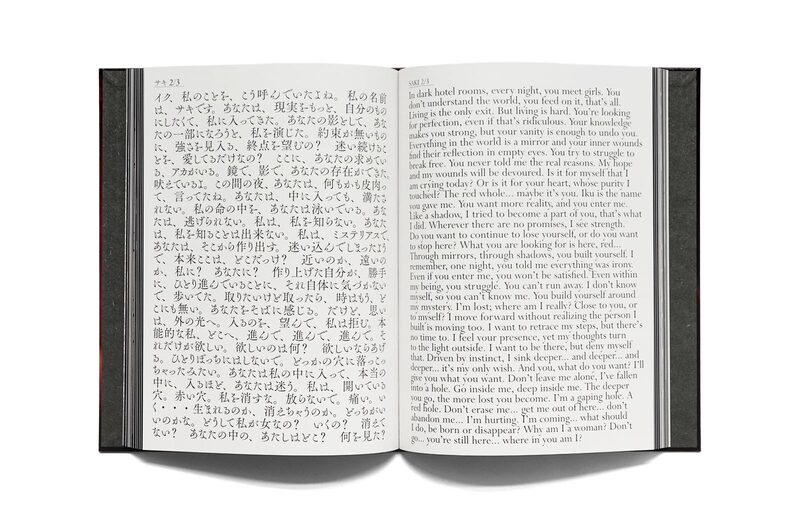 サキ 2/3
イク 私のことを、こう呼んでいたよね。私の名前
は、サキです。あなたは、現実をもっと、自分のもの
にしたくて、私に入ってきた。あなたの影として、あな
たの一部になろうと、私を演じた。約束が無いもの
に、強さを見入る、終点を望むの？ 迷い続けるこ
とを、愛してるだけなの？ ここに、あなたの求めてい
る、アカがいる。鏡で、影で、あなたの存在ができてき
吠えているよ。この間の夜、あなたは、何もかも皮肉っ
て、言ってたね。あなたは、中に入っても、満た
されない。私の命の中を、あなたは泳いでいる。あな
たは、逃げられない。私は、私を知らない。あなた
は、私を知ることは出来ない。私は、ミステリアスで、
あなたは、そこから作り出す。迷い込んでしまったよう
で、本来ここは、どこだっけ？ 近いのか、遠いの
か、私に？ あなたに？ 作り上げた自分が、勝手
に、ひとり進んでいることに、それ自体に気づかない
で、歩いてた。取りたいけど取ったら、時はもう、ど
こにも無い。あなたをそばに感じる。だけど、思い
は、外の光へ。入るのを、望んで、私は拒む。本
能的な私、どこへ、進んで、進んで、進んで。そ
れだけが欲しい。欲しいのは何？ 欲しいならあげ
る。ひとりぼっちにはしないで。どっかの穴に落っこ
ちゃったみたい。あなたは私の中に入って、本当の
中に、入るほど、あなたは迷う。私は、開いている
穴。赤い穴。私を消すな。放らないで。痛い。い
く・・・生まれるのか、消えちゃうのか。どっちがい
いのかな。どうして私が女なの？ いくの？ 消えて
ない？ あなたの中の、あたしはどこ？ 何を見た？
SAKI 2/3
In dark hotel rooms, every night, you meet girls. You
don't understand the world, you feed on it, that's all.
Living is the only exit. But living is hard. You're looking
for perfection, even if that's ridiculous. Your knowledge
makes you strong, but your vanity is enough to undo you.
Everything in the world is a mirror and your inner wounds
find their reflection in empty eyes. You try to struggle to
break free. You never told me the real reasons. My hope
and my wounds will be devoured. Is it for myself that I
am crying today? Or is it for your heart, whose purity I
touched? The red whole... maybe it's you. Iku is the name
you gave me. You want more reality, and you enter me.
Like a shadow, I tried to become a part of you, that's what
I did. Wherever there are no promises, I see strength.
Do you want to continue to lose yourself, or do you want
to stop here? What you are looking for is here, red...
Through mirrors, through shadows, you built yourself. I
remember, one night, you told me everything was irony.
Even if you enter me, you won't be satisfied. Even within
my being, you struggle. You can't run away. I don't know
myself, so you can't know me. You build yourself around
my mystery. I'm lost; where am I really? Close to you, or
to myself? I move forward without realizing the person I
built is moving too. I want to retrace my steps, but there's
no time to. I feel your presence, yet my thoughts turn
to the light outside. I want to be there, but deny myself
that. Driven by instinct, I sink deeper... and deeper... and
deeper... it's my only wish. And you, what do you want? I'll
give you what you want. Don't leave me alone, I've fallen
into a hole. Go inside me, deep inside me. The deeper
you go, the more lost you become. I'm a gaping hole. A
red hole. Don't erase me... get me out of here... don't
abandon me... I'm hurting. I'm coming... what should
I do, be born or disappear? Why am I a woman? Don't
go... you're still here... where in you am I?